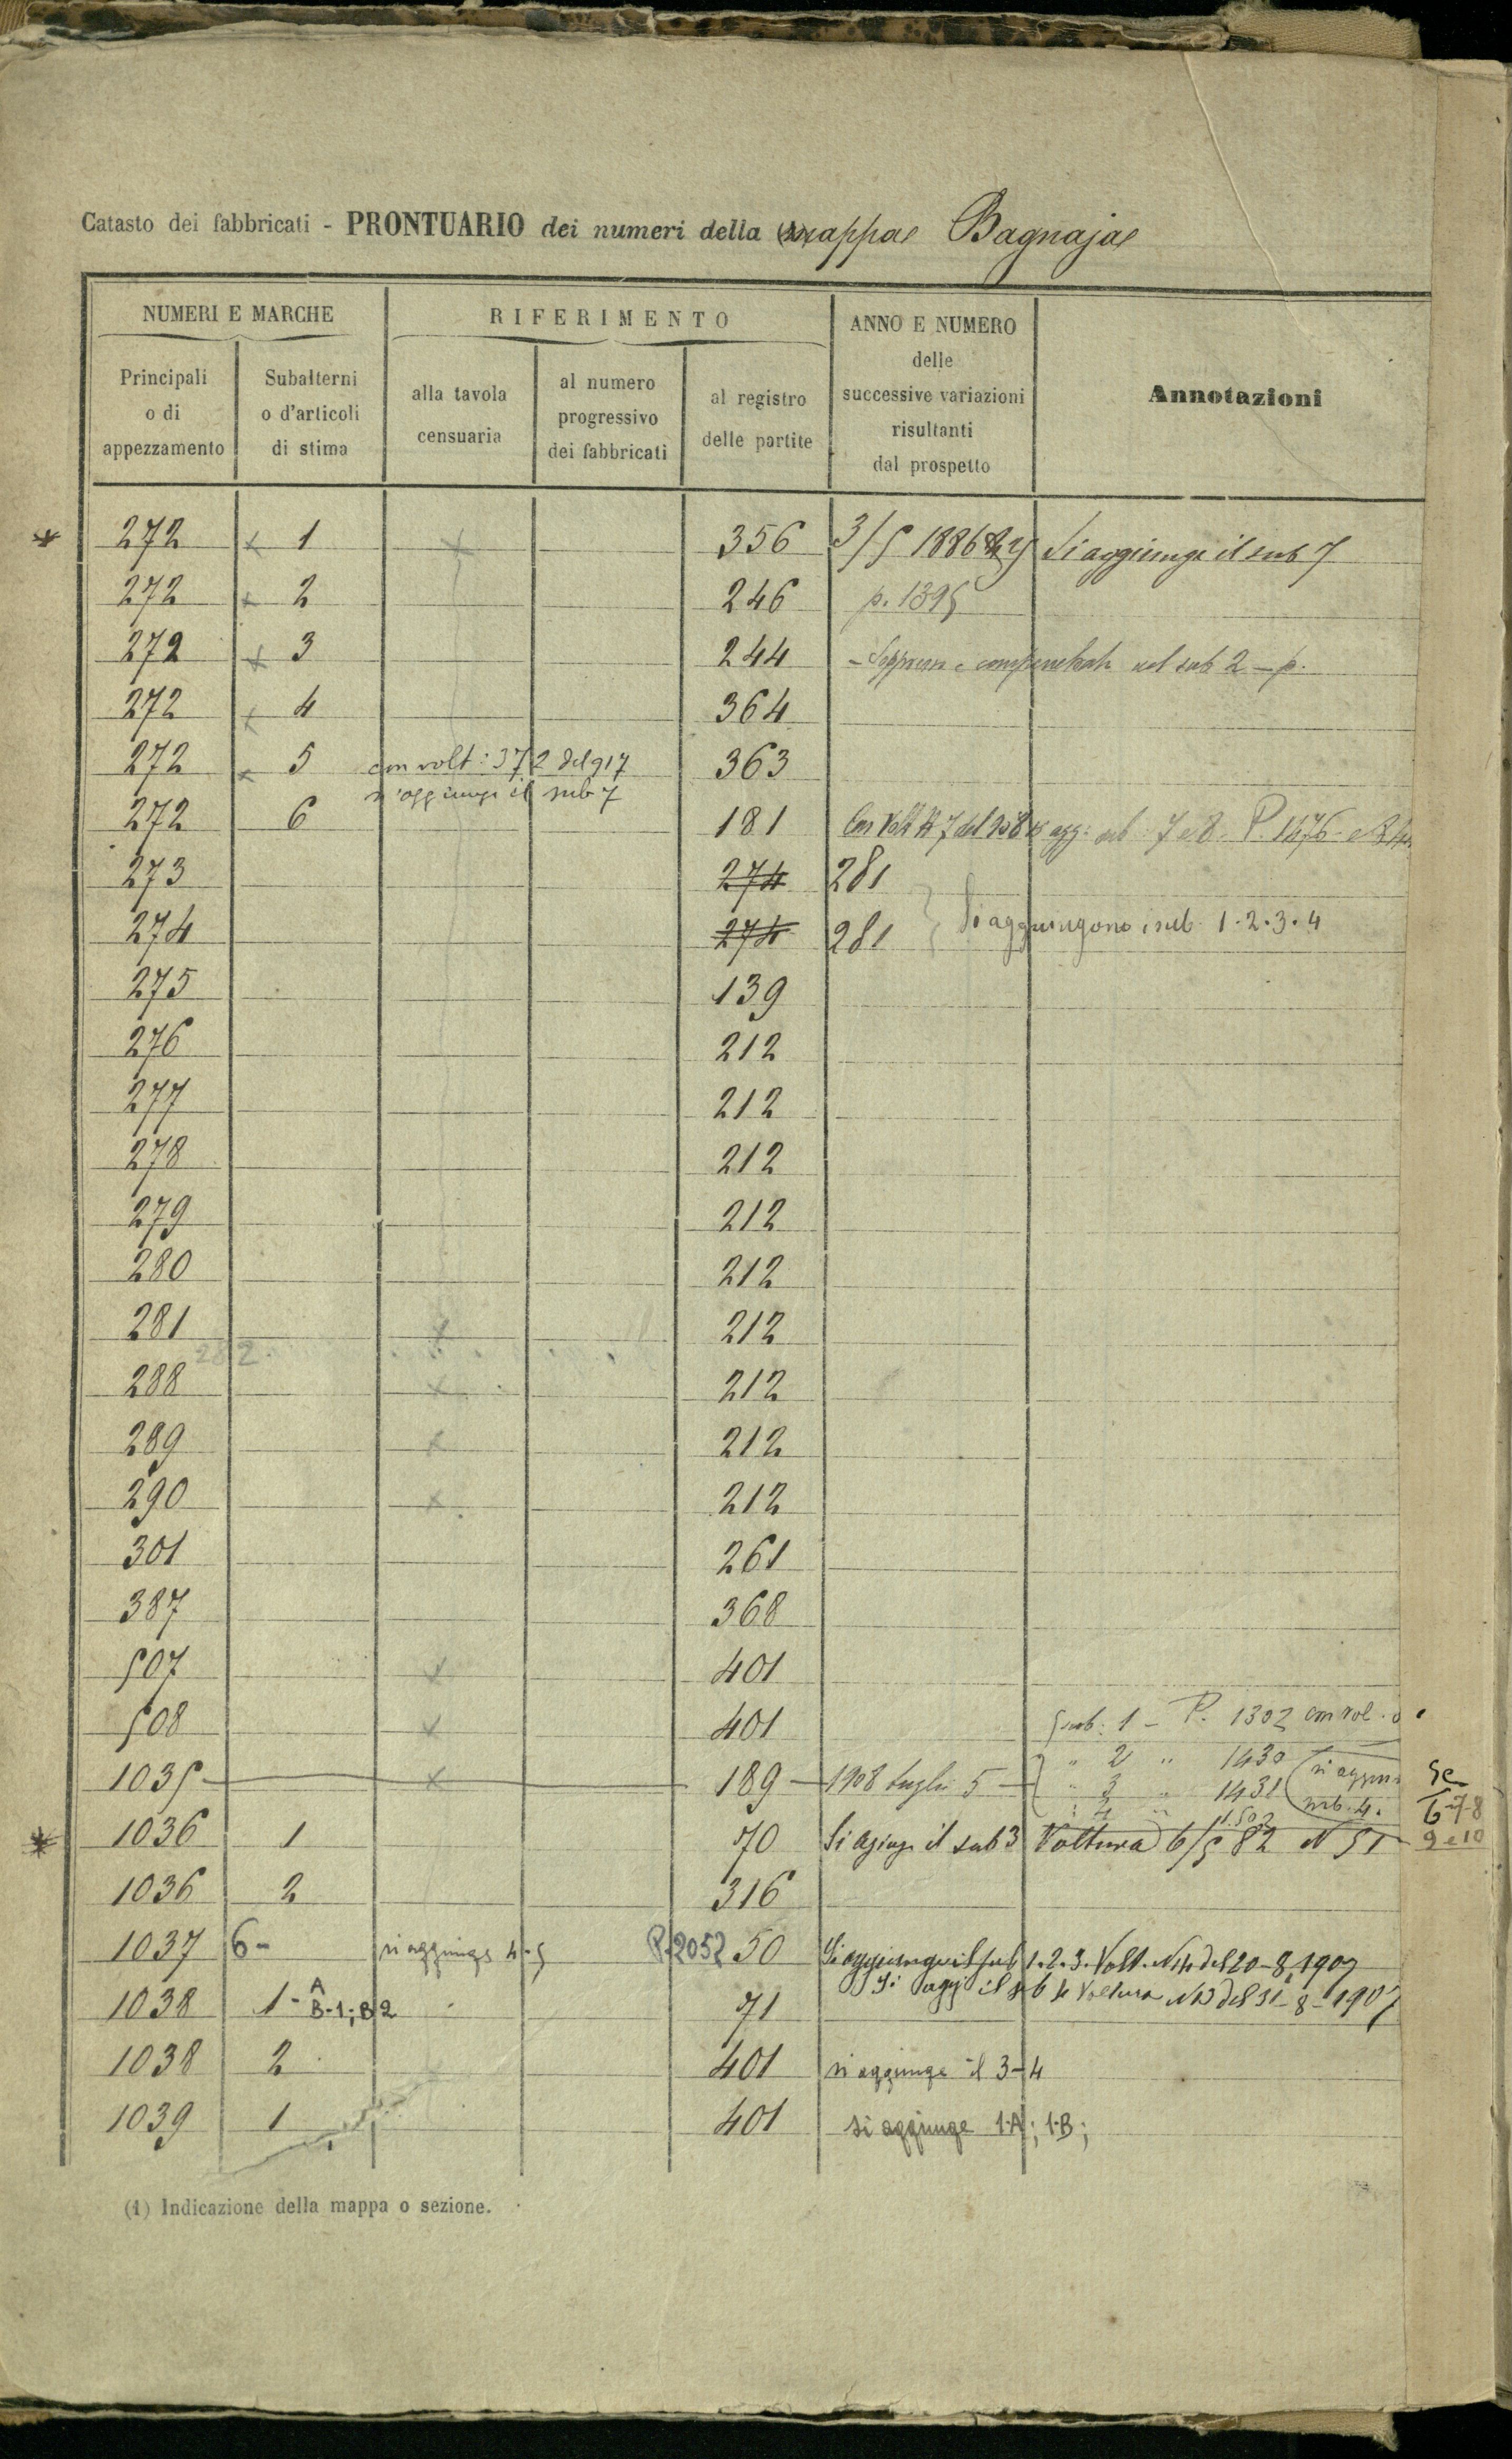 Catasto dei fabbricati - PRONTUARIO dei numeri della (1) mappa Bagnaja
NUMERI E MARCHE
RIFERIMENTO
ANNO E NUMERO
delle
successive variazioni
risultanti
dal prospetto
Annotazioni
Principali
o di
appezzamento
Subalterni
o d'articoli
di stima
alla tavola
censuaria
al numero
progressivo
dei fabbricati
al registro
delle partite
* 272 x 1 x 356 3/5 1886 Si aggiunge il sub 7
272 x 2 246 p. 1395
272 x 3 244 - nel sub 2 - p.
272 x 4 364
272 x 5 con volt: 372 del 917 363
s'aggiunge il sub 7
272 6 181 Con Volt N 7 del 938 si agg: sub 7 e 8 P. 1476
273 274 281
274 274 281 } Si aggiungono i sub. 1.2.3.4
275 139
276 212
277 212
278 212
279 212
280 212
281 x 212
282
288 x 212
289 x 212
290 x 212
301 261
387 368
507 x 401
508 x 401 sub: 1 - P. 1302 con vol.
" 2 " 1430
1035 x 189 - 1908 Luglio 5 - " 3 " 1431 (si aggiun 5 e
" 4 " 1502 sub. 4. 6-7-8
* 1036 1 70 Si agiunge il sub 3 Voltura 6/5 82 N 51 9 e 10
1036 2 316
1037 6- si aggiunge 4-5 P. 2052 50 Si aggiungie il sub 1.2.3. Volt. N 14 del 20-8-1907
Si agg: il sub 4 Voltura N 13 del 31-8-1907
1038 1- A B-1; B2 71
1038 2 401 si aggiunge il 3-4
1039 1 401 si aggiunge 1-A; 1-B;
(1) Indicazione della mappa o sezione.